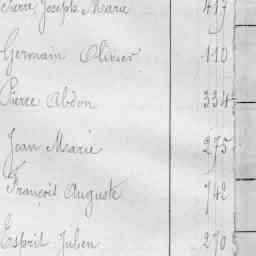 Pierre, Joseph Marie 417
Germain Olivier 110
Pierre Abdon 334
Jean Marie 275
François Auguste 742
Esprit Julien 270